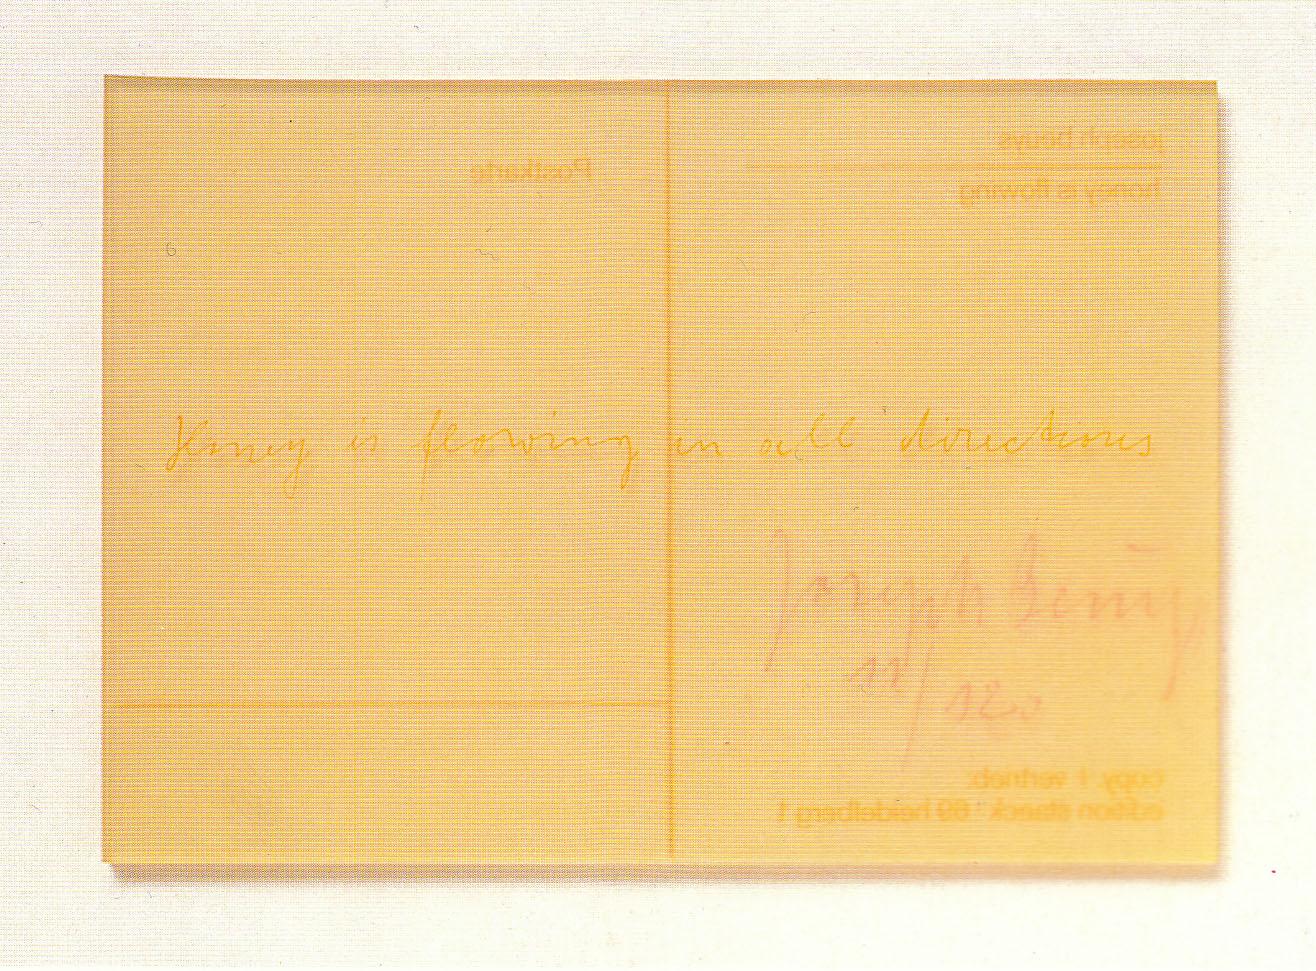 joseph beuys
Postkarte
honey is flowing
Honey is flowing in all directions
Joseph Beuys
11/120
copy. + vertrieb:
edition staeck 69 heidelberg 1